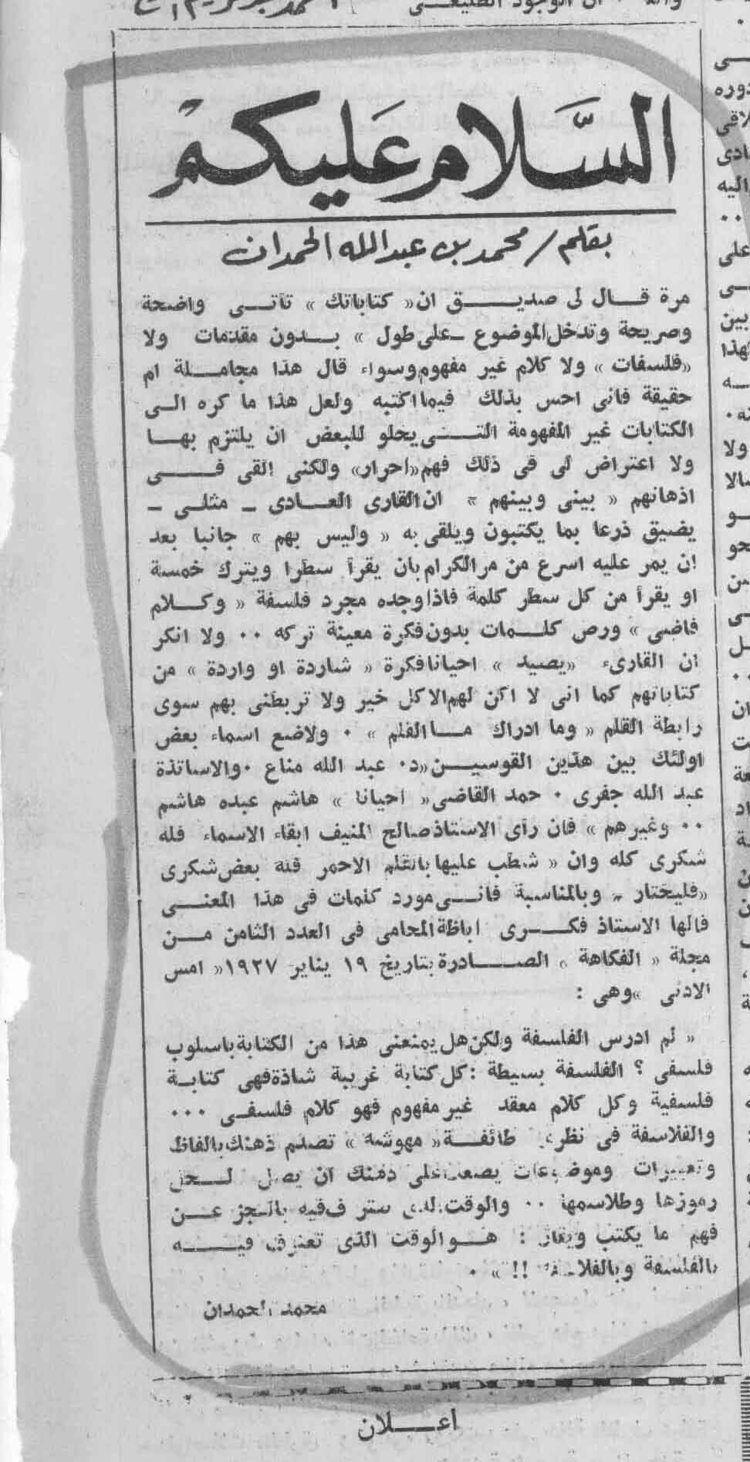 السَّلام عَليكم
بقلم / محمد بن عبدالله الحمدان
مرة قال لى صديق ان « كتاباتك » تأتى واضحة
وصريحة وتدخل الموضوع - على طول » بدون مقدمات ولا
«فلسفات » ولا كلام غير مفهوم وسواء قال هذا مجاملة ام
حقيقة فانى احس بذلك فيما اكتبه ولعل هذا ما كره الى
الكتابات غير المفهومة التى يحلو للبعض ان يلتزم بها
ولا اعتراض لى فى ذلك فهم «احرار» ولكنى القى فى
اذهانهم « بينى وبينهم » ان القارى العادى - مثلى -
يضيق ذرعا بما يكتبون ويلقى به « وليس بهم » جانبا بعد
ان يمر عليه اسرع من مر الكرام بان يقرأ سطرا ويترك خمسة
او يقرأ من كل سطر كلمة فاذا وجده مجرد فلسفة « وكلام
فاضى » ورص كلمات بدون فكرة معينة تركه ٠٠ ولا انكر
ان القارىء «يصيد » احيانا فكرة « شاردة او واردة » من
كتاباتهم كما انى لا اكن لهم الا كل خير ولا تربطنى بهم سوى
رابطة القلم « وما ادراك ما القلم » ٠ ولاضع اسماء بعض
اولئك بين هذين القوسين «د٠ عبد الله مناع ٠ والاساتذة
عبد الله جفرى ٠ حمد القاضى « احيانا » هاشم عبده هاشم
٠٠ وغيرهم » فان رأى الاستاذ صالح المنيف ابقاء الاسماء فله
شكرى كله وان « شطب عليها بالقلم الاحمر فله بعض شكرى
«فليختار - وبالمناسبة فانى مورد كلمات فى هذا المعنى
قالها الاستاذ فكرى اباظة المحامى فى العدد الثامن من
مجلة « الفكاهة » الصادرة بتاريخ ١٩ يناير ١٩٢٧ « امس
الادنى » وهى :
« لم ادرس الفلسفة ولكن هل يمنعنى هذا من الكتابة باسلوب
فلسفى ؟ الفلسفة بسيطة : كل كتابة غريبة شاذة فهى كتابة
فلسفية وكل كلام معقد غير مفهوم فهو كلام فلسفى ٠٠٠
والفلاسفة فى نظرى طائفة « مهوشه » تصدم ذهنك بالفاظ
وتعبيرات وموضوعات يصعب على ذهنك ان يصل لحل
رموزها وطلاسمها ٠٠ والوقت الذى تعترف فيه بالعجز عن
فهم ما يكتب ويقال : هو الوقت الذى تعترف فيه
بالفلسفة وبالفلاسفة !! » ٠
محمد الحمدان
اعلان